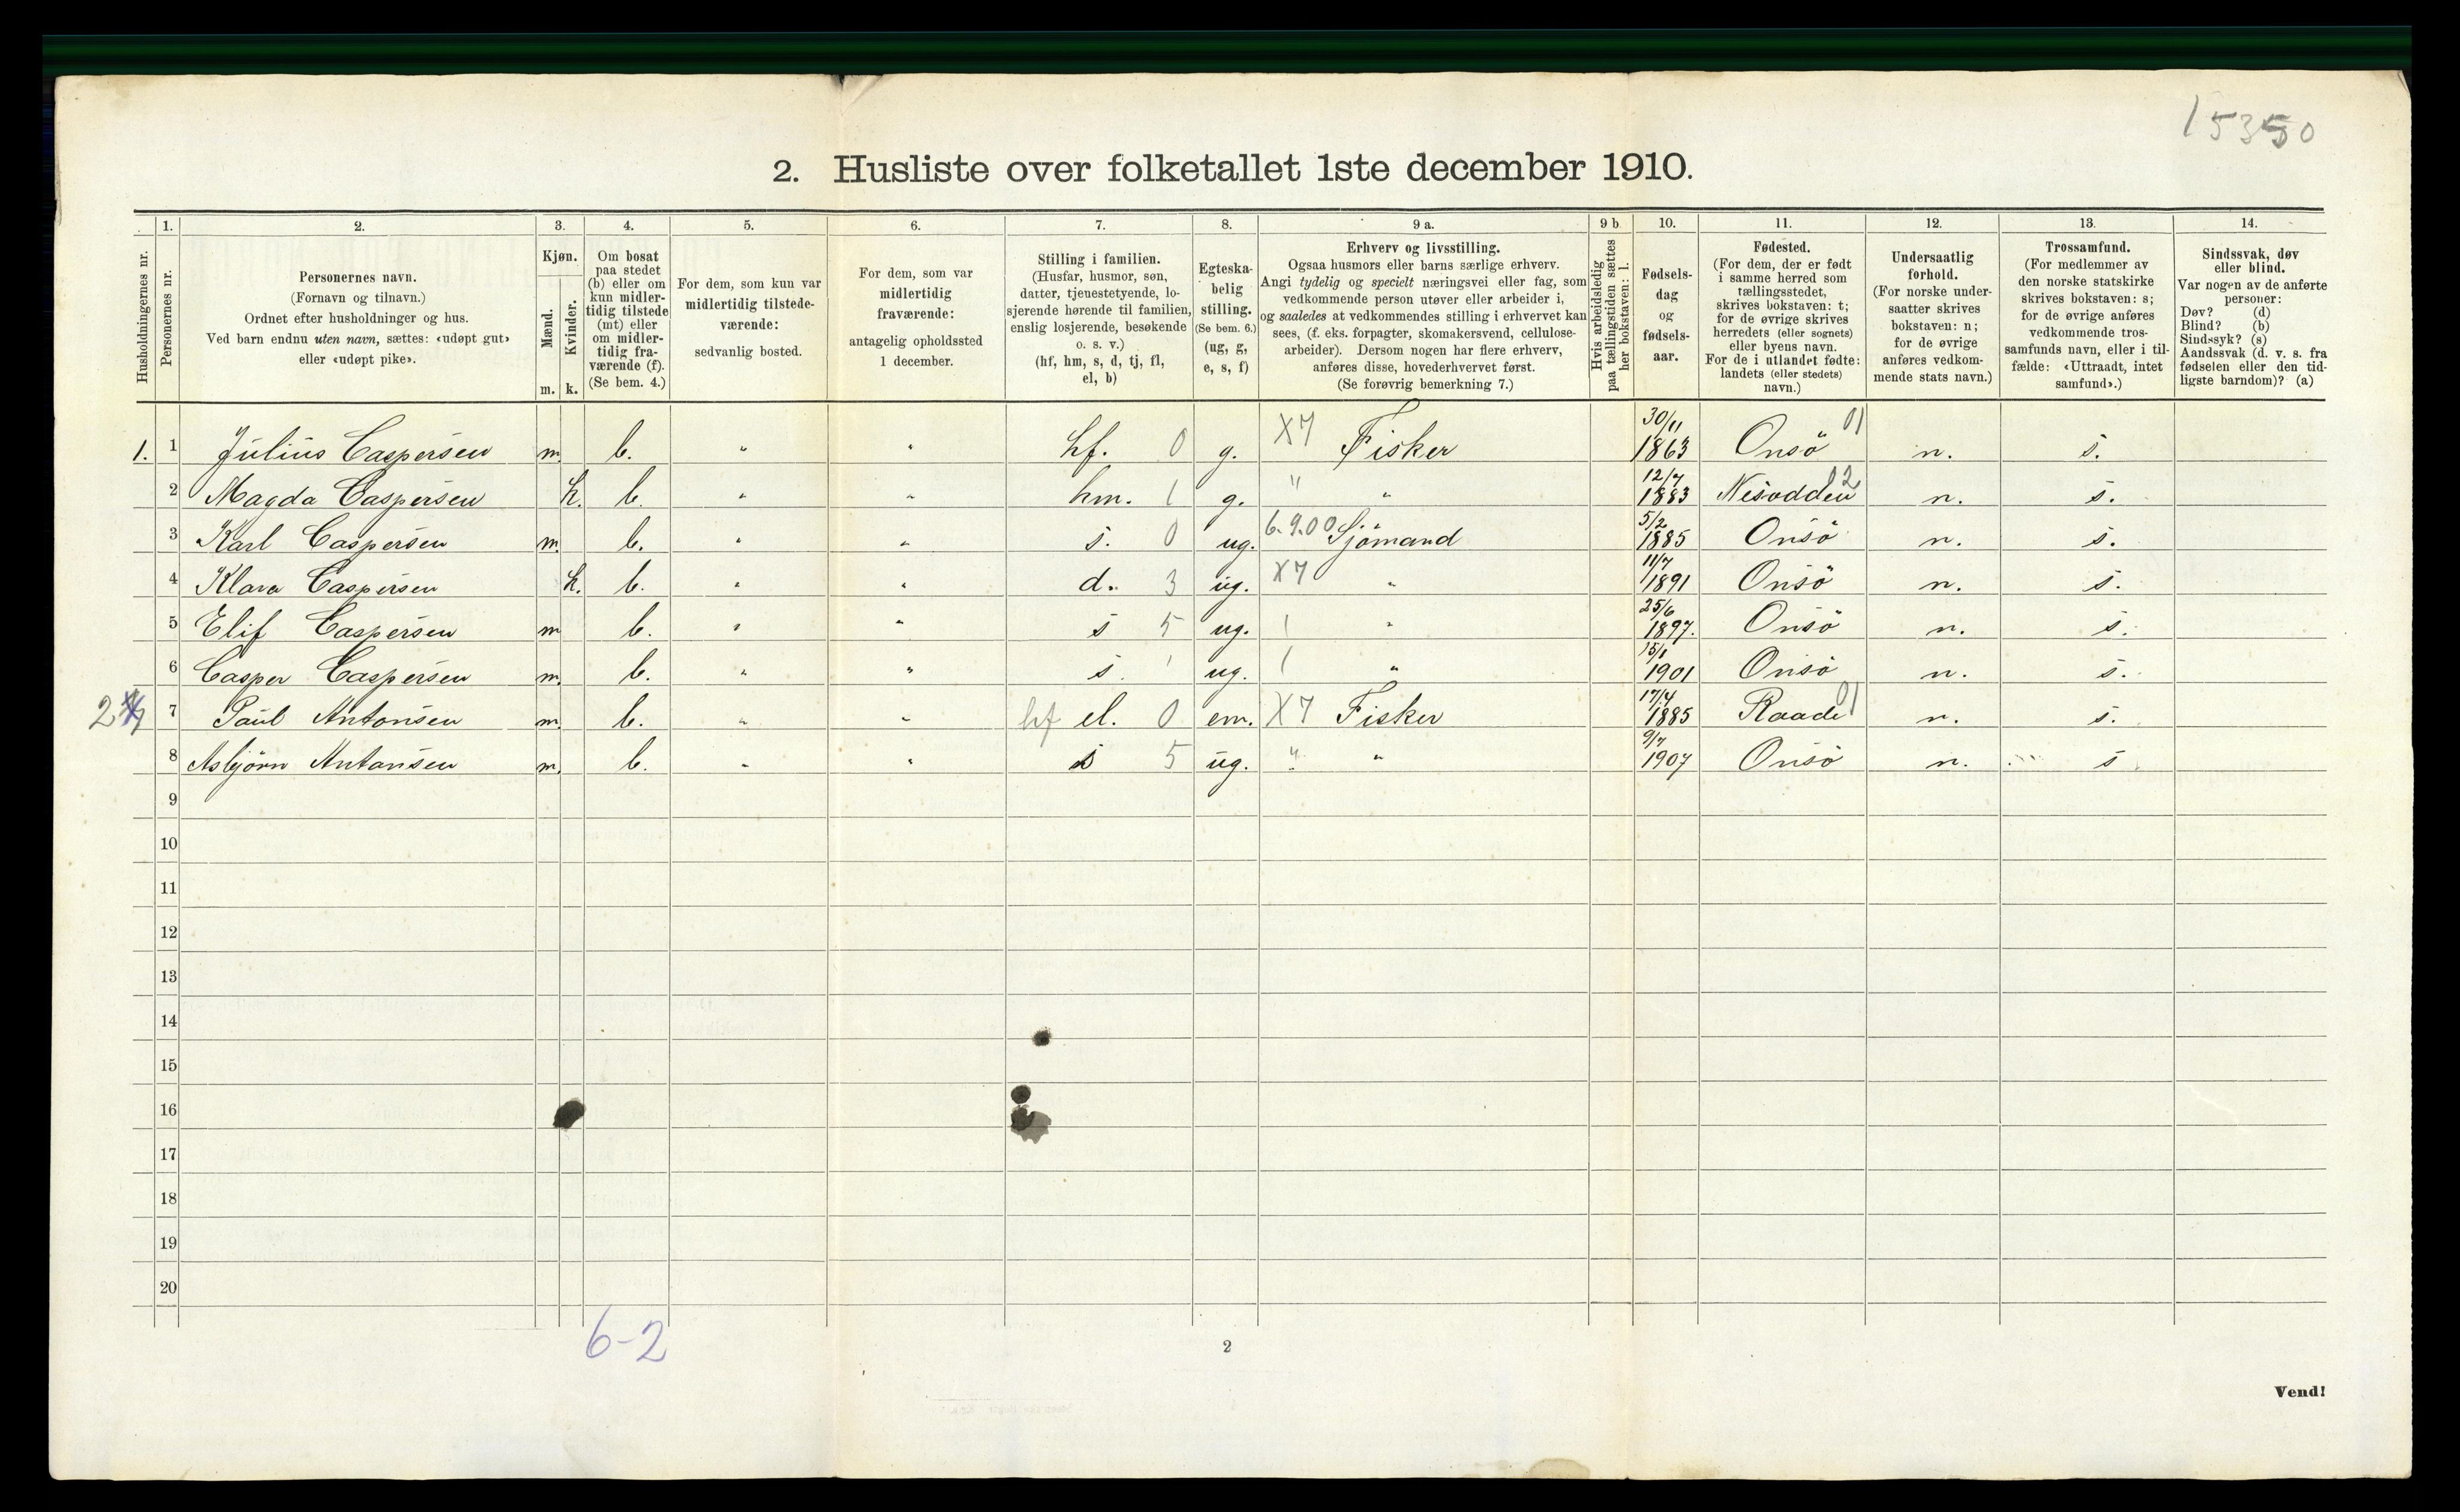 15350
2. Husliste over folketallet 1ste december 1910.
Husholdningernes nr.
1. Personernes nr.
2. Personernes navn.
(Fornavn og tilnavn.)
Ordnet efter husholdninger og hus.
Ved barn endnu uten navn, sættes: «udøpt gut»
eller «udøpt pike».
3. Kjøn.
Mænd. m.
Kvinder. k.
4. Om bosat
paa stedet
(b) eller om
kun midler-
tidig tilstede
(mt) eller
om midler-
tidig fra-
værende (f).
(Se bem. 4.)
5. For dem, som kun var
midlertidig tilstede-
værende:
sedvanlig bosted.
6. For dem, som var
midlertidig
fraværende:
antagelig opholdssted
1 december.
7. Stilling i familien.
(Husfar, husmor, søn,
datter, tjenestetyende, lo-
sjerende hørende til familien,
enslig losjerende, besøkende
o. s. v.)
(hf, hm, s, d, tj, fl,
el, b)
8. Egteska-
belig
stilling.
(Se bem. 6.)
(ug, g,
e, s, f)
9 a. Erhverv og livsstilling.
Ogsaa husmors eller barns særlige erhverv.
Angi tydelig og specielt næringsvei eller fag, som
vedkommende person utøver eller arbeider i,
og saaledes at vedkommendes stilling i erhvervet kan
sees, (f. eks. forpagter, skomakersvend, cellulose-
arbeider). Dersom nogen har flere erhverv,
anføres disse, hovederhvervet først.
(Se forøvrig bemerkning 7.)
9 b. Hvis arbeidsledig
paa tællingstiden sættes
her bokstaven: l.
10. Fødsels-
dag
og
fødsels-
aar.
11. Fødested.
(For dem, der er født
i samme herred som
tællingsstedet,
skrives bokstaven: t;
for de øvrige skrives
herredets (eller sognets)
eller byens navn.
For de i utlandet fødte:
landets (eller stedets)
navn.)
12. Undersaatlig
forhold.
(For norske under-
saatter skrives
bokstaven: n;
for de øvrige
anføres vedkom-
mende stats navn.)
13. Trossamfund.
(For medlemmer av
den norske statskirke
skrives bokstaven: s;
for de øvrige anføres
vedkommende tros-
samfunds navn, eller i til-
fælde: «Uttraadt, intet
samfund».)
14. Sindssvak, døv
eller blind.
Var nogen av de anførte
personer:
Døv? (d)
Blind? (b)
Sindssyk? (s)
Aandssvak (d. v. s. fra
fødselen eller den tid-
ligste barndom)? (a)
1. 1 Julius Caspersen m. b. " " hf. 0 g. X7 Fisker 30/11 1863 Onsö 01 n. s.
2 Magda Caspersen k. b. " " hm. 1 g. " " 12/7 1883 Nesodden 02 n. s.
3 Karl Caspersen m. b. " " s. 0 ug. 6.9.00 Sjömand 5/2 1885 Onsö n. s.
4 Klara Caspersen k. b. " " d. 3 ug. X7 " 11/7 1891 Onsö n. s.
5 Elif Caspersen m. b. " " s 5 ug. 1 " 25/6 1897. Onsö n. s.
6 Casper Caspersen m. b. " " s. 1 ug. 1 " 15/1 1901 Onsö n. s.
2 7 Paul Antonsen m. b. " " hf el. 0 em. X7 Fisker 17/4 1885 Raade 01 n. s.
8 Asbjörn Antonsen m. b. " " s 5 ug. " " 9/7 1907 Onsö n. s
9
10
11
12
13
14
15
16
17
18
19
20
6-2
2
Vend!